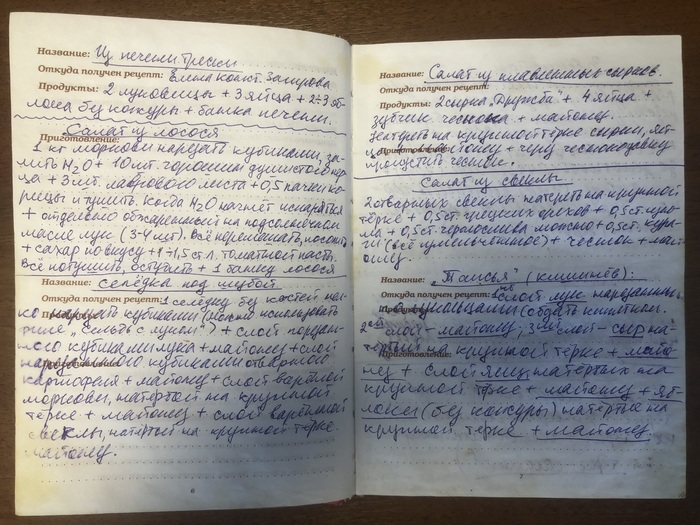 Название: Из печени трески
Откуда получен рецепт: Елена Конст. Захарова
Продукты: 2 луковицы + 3 яйца + 2÷3 яб-
лока без кожуры + банка печени.
Приготовление:
Салат из лосося
1 кг моркови нарезать кубиками, за-
лить H2O + 10 шт. горошин душистого пер-
ца + 3 шт. лаврового листа + 0,5 пачки ко-
рицы и тушить. Когда H2O начнёт испаряться
+ отдельно обжаренный на подсолнечном
масле лук (3-4 шт). Всё перемешать, посолить
+ сахар по вкусу + 1÷1,5 ст.л. томатной пасты.
Всё потушить, остудить + 1 банку лосося
Название: Селёдка под шубой
Откуда получен рецепт: 1 селёдку без костей мел-
ко нарезать кубиками (можно использовать
филе "Сельдь с луком") + слой порезан-
ного кубиками лука + майонез + слой
нарезанного кубиками отварного
картофеля + майонез + слой варёной
моркови, натёртой на крупной
тёрке + майонез + слой варёной
свеклы, натёртой на крупной тёрке.
майонез.
6
Название: Салат из плавленных сырков.
Откуда получен рецепт:
Продукты: 2 сырка "Дружба" + 4 яйца +
зубчик чеснока + майонез.
Натереть на крупной тёрке сырки, яй-
Приготовление:
ца + майонез + через чеснокодавку
пропустить чеснок.
Салат из свеклы
2 отварных свеклы натереть на крупной
тёрке + 0,5 ст. грецких орехов + 0,5 ст. изю-
ма + 0,5 ст. чернослива можно + 0,5 ст. кура-
ги (всё измельчённое) + чеснок + май-
онез.
Название: "Таисья" (Кишинёв):
Откуда получен рецепт: 1ый слой лук нарезанный
Продукты: кольцами (обдать кипятком.
2ой слой - майонез, 3ий слой - сыр на-
тёртый на крупной тёрке + майо-
Приготовление:
нез + слой яиц, натёртых на
крупной тёрке + майонез + яб-
локи (без кожуры) натёртые на
крупной тёрке + майонез